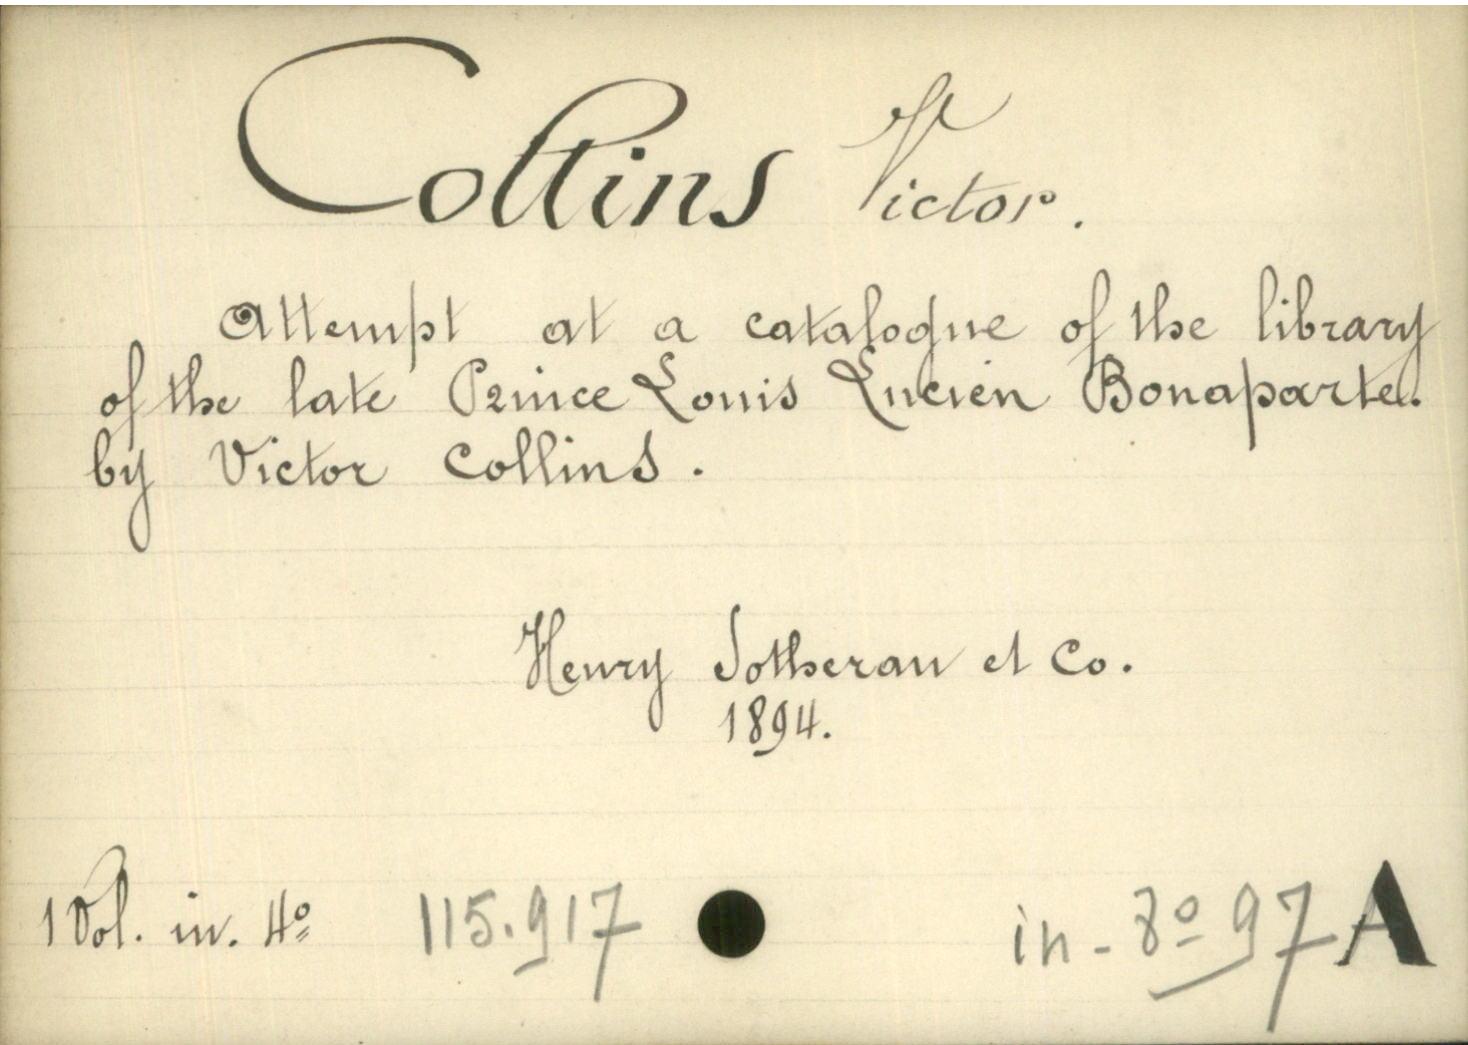 Collins Victor.
Attempt at a catalogue of the library
of the late Prince Louis Lucien Bonaparte.
by Victor Collins.
Henry Sotheran et Co.
1894.
1 Vol. in. 4º 115.917 in-8º 97 A